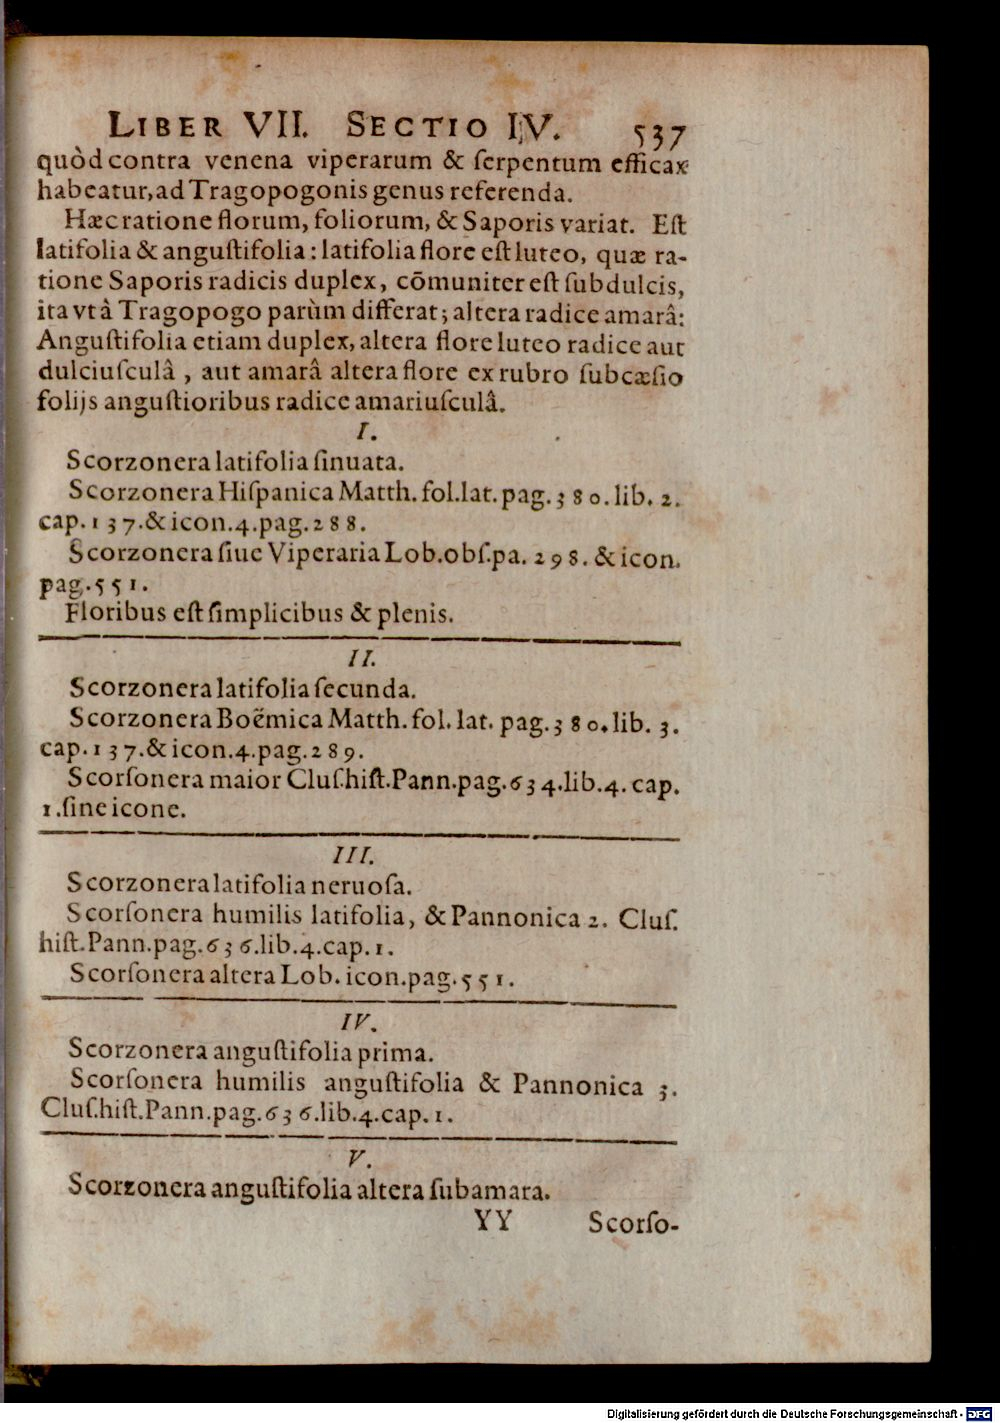 LIBER VII. SECTIO IV. 537
quòd contra venena viperarum & ſerpentum efficax
habeatur, ad Tragopogonis genus referenda.
Hæc ratione florum, foliorum, & Saporis variat. Eſt
latifolia & anguſtifolia: latifolia flore eſt luteo, quæ ra-
tione Saporis radicis duplex, cōmuniter eſt ſubdulcis,
ita vt â Tragopogo parùm differat; altera radice amarâ:
Anguſtifolia etiam duplex, altera flore luteo radice aut
dulciuſculâ, aut amarâ altera flore ex rubro ſubcæſio
folijs anguſtioribus radice amariuſculâ.
I.
Scorzonera latifolia ſinuata.
Scorzonera Hiſpanica Matth. fol. lat. pag. 380. lib. 2.
cap. 137. & icon. 4. pag. 288.
Scorzonera ſiue Viperaria Lob. obſ. pa. 298. & icon.
pag. 551.
Floribus eſt ſimplicibus & plenis.
II.
Scorzonera latifolia ſecunda.
Scorzonera Boëmica Matth. fol. lat. pag. 380. lib. 3.
cap. 137. & icon. 4. pag. 289.
Scorſonera maior Cluſ. hiſt. Pann. pag. 634. lib. 4. cap.
1. ſine icone.
III.
Scorzonera latifolia neruoſa.
Scorſonera humilis latifolia, & Pannonica 2. Cluſ.
hiſt. Pann. pag. 636. lib. 4. cap. 1.
Scorſonera altera Lob. icon. pag. 551.
IV.
Scorzonera anguſtifolia prima.
Scorſonera humilis anguſtifolia & Pannonica 3.
Cluſ. hiſt. Pann. pag. 636. lib. 4. cap. 1.
V.
Scorzonera anguſtifolia altera ſubamara.
YY Scorſo-
Digitalisierung gefördert durch die Deutsche Forschungsgemeinschaft - DFG